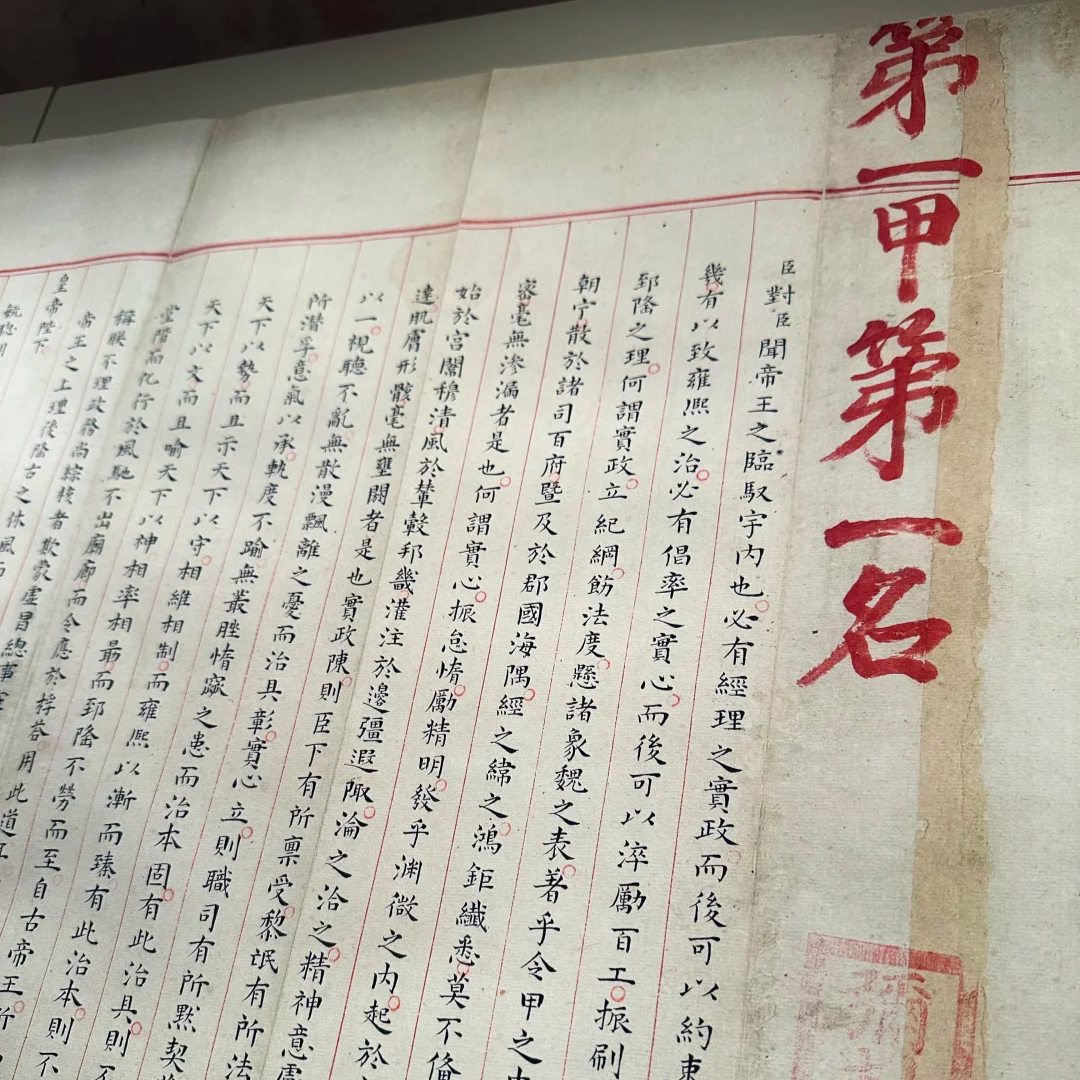 第一甲第一名
臣對臣聞帝王之臨馭宇内也必有經理之實政而後可以約束
幾有以致雍熙之治必有倡率之實心而後可以淬厲百工振刷
郅隆之理何謂實政立紀綱飭法度懸諸象魏之表著乎令甲之中
朝宁散於諸司百府暨及於郡國海隅經之緯之鴻鉅纖悉莫不備
審毫無滲漏者是也何謂實心振怠惰勵精明發乎淵微之内起於
始於宮闈穆清風於輦轂邦畿灌注於邊疆遐陬淪之洽之精神意慮
達肌膚形骸毫無壅閼者是也實政陳則臣下有所稟受黎氓有所法
以一視聽不亂無散漫飄離之憂而治具彰實心立則職司有所默契
所潛孚意氣以承軌度不踰無叢脞惰窳之患而治本固有此治具則
天下以勢而且示天下以守相維相制而雍熙以漸而臻有此治本則不
天下以文而且喻天下以神相率相勗而郅隆不勞而至自古帝王所
堂階而化行於風馳不出廟廊而令應於桴荅用此道
稱朕不理政務尚綜核者欺蒙虛冒總事
帝王之上理後陰古之休風
皇帝陛下